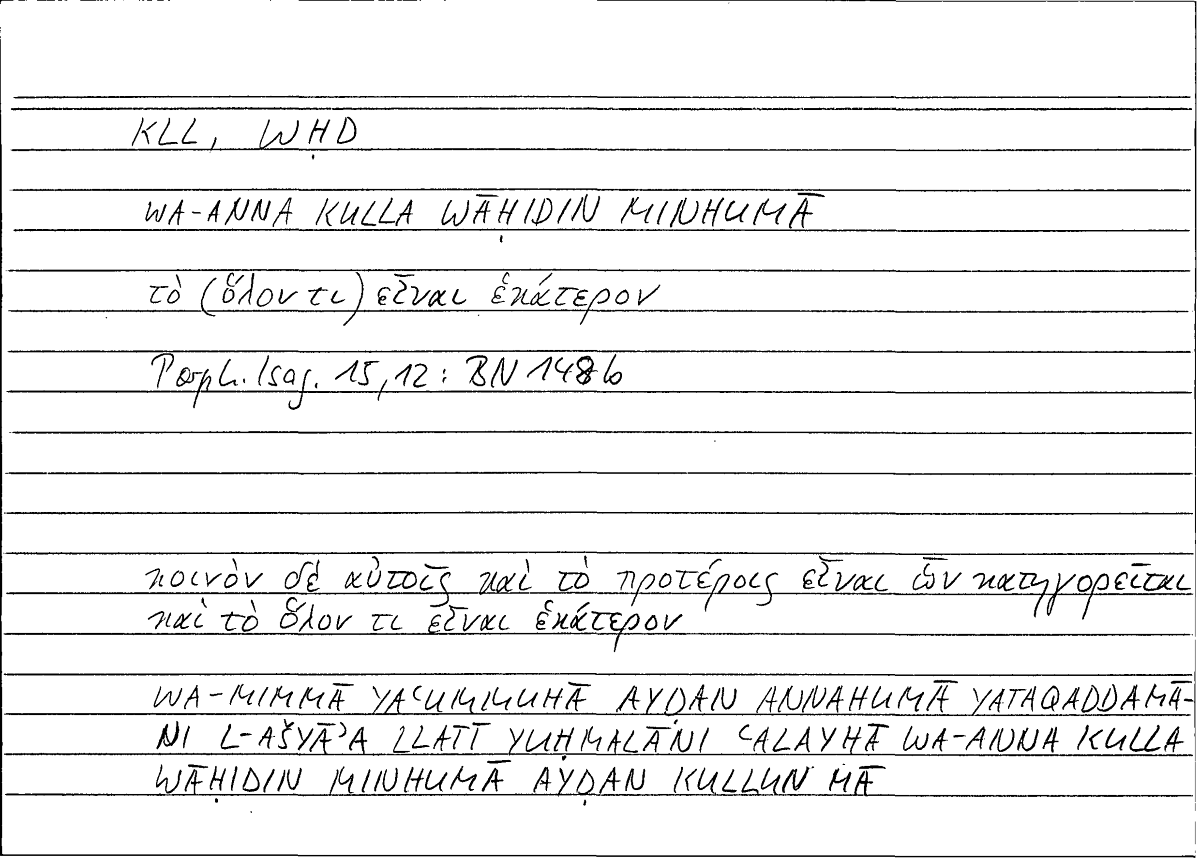 KLL, WḤD
WA-ANNA KULLA WĀḤIDIN MINHUMĀ
τὸ (ὅλον τι) εἶναι ἑκάτερον
Porph. Isag. 15,12: BN 148b
κοινὸν δὲ αὐτοῖς καὶ τὸ προτέροις εἶναι ὧν κατηγορεῖται
καὶ τὸ ὅλον τι εἶναι ἑκάτερον
WA-MIMMĀ YAʿUMMUHĀ AYḌAN ANNAHUMĀ YATAQADDAMĀ-
NI L-AŠYĀʾA LLATĪ YUḤMALĀNI ʿALAYHĀ WA-ANNA KULLA
WĀḤIDIN MINHUMĀ AYḌAN KULLUN MĀ